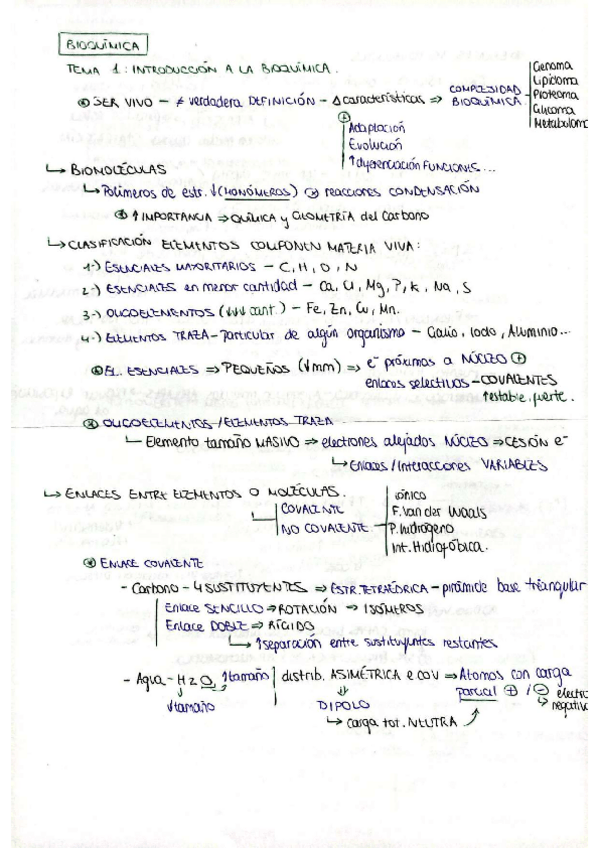 BIOQUÍMICA
TEMA 1: INTRODUCCIÓN A LA BIOQUÍMICA.
SER VIVO - ≠ verdadera DEFINICIÓN - Δ características ⇒ COMPLEJIDAD BIOQUÍMICA
Genoma
Lipidoma
Proteoma
Glicoma
Metabolom
Adaptación
Evolución
↑ diferenciación FUNCIONES...
↳ BIOMOLÉCULAS
↳ Polímeros de estr. ↓ (MONÓMEROS) → reacciones CONDENSACIÓN
↑ IMPORTANCIA ⇒ QUÍMICA y GEOMETRÍA del Carbono
↳ CLASIFICACIÓN ELEMENTOS COMPONEN MATERIA VIVA:
1.-) ESENCIALES MAYORITARIOS - C, H, O, N
2.-) ESENCIALES en menor cantidad - Ca, Cl, Mg, P, K, Na, S
3.-) OLIGOELEMENTOS (↓↓↓ cant.) - Fe, Zn, Cu, Mn.
4.-) ELEMENTOS TRAZA - particular de algún organismo - Galio, Iodo, Aluminio...
EL. ESENCIALES ⇒ PEQUEÑOS (↓mm) ⇒ e⁻ próximas a NÚCLEO
enlaces selectivos - COVALENTES
↑estable, fuerte.
OLIGOELEMENTOS / ELEMENTOS TRAZA
↳ Elemento tamaño MASIVO ⇒ electrones alejados NÚCLEO ⇒ CESIÓN e⁻
↳ Enlaces / Interacciones VARIABLES
↳ ENLACES ENTRE ELEMENTOS O MOLÉCULAS.
COVALENTE
NO COVALENTE
iónico
F. Van der Waals
P. hidrógeno
Int. Hidrofóbica.
ENLACE COVALENTE
- Carbono - 4 SUSTITUYENTES ⇒ ESTR. TETRAÉDRICA - pirámide base triangular
Enlace SENCILLO ⇒ ROTACIÓN → ISÓMEROS
Enlace DOBLE ⇒ RÍGIDO
↳ ↑separación entre sustituyentes restantes
- Agua - H2O, ↑tamaño | distrib. ASIMÉTRICA e COV ⇒ Átomos con carga
↓tamaño
DIPOLO
parcial ⊕ / ⊖ electro
negativi
↳ carga tot. NEUTRA